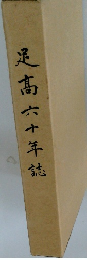 足高六十年誌